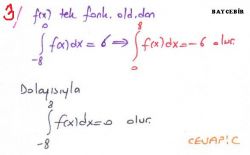 3/ f(x) tek fonk. old.dan
BAYCEBİR
∫₋₈⁰ f(x)dx = 6 ⇒ ∫₀⁸ f(x)dx = -6 olur.
Dolayısıyla
∫₋₈⁸ f(x)dx = 0 olur.
CEVAP: C